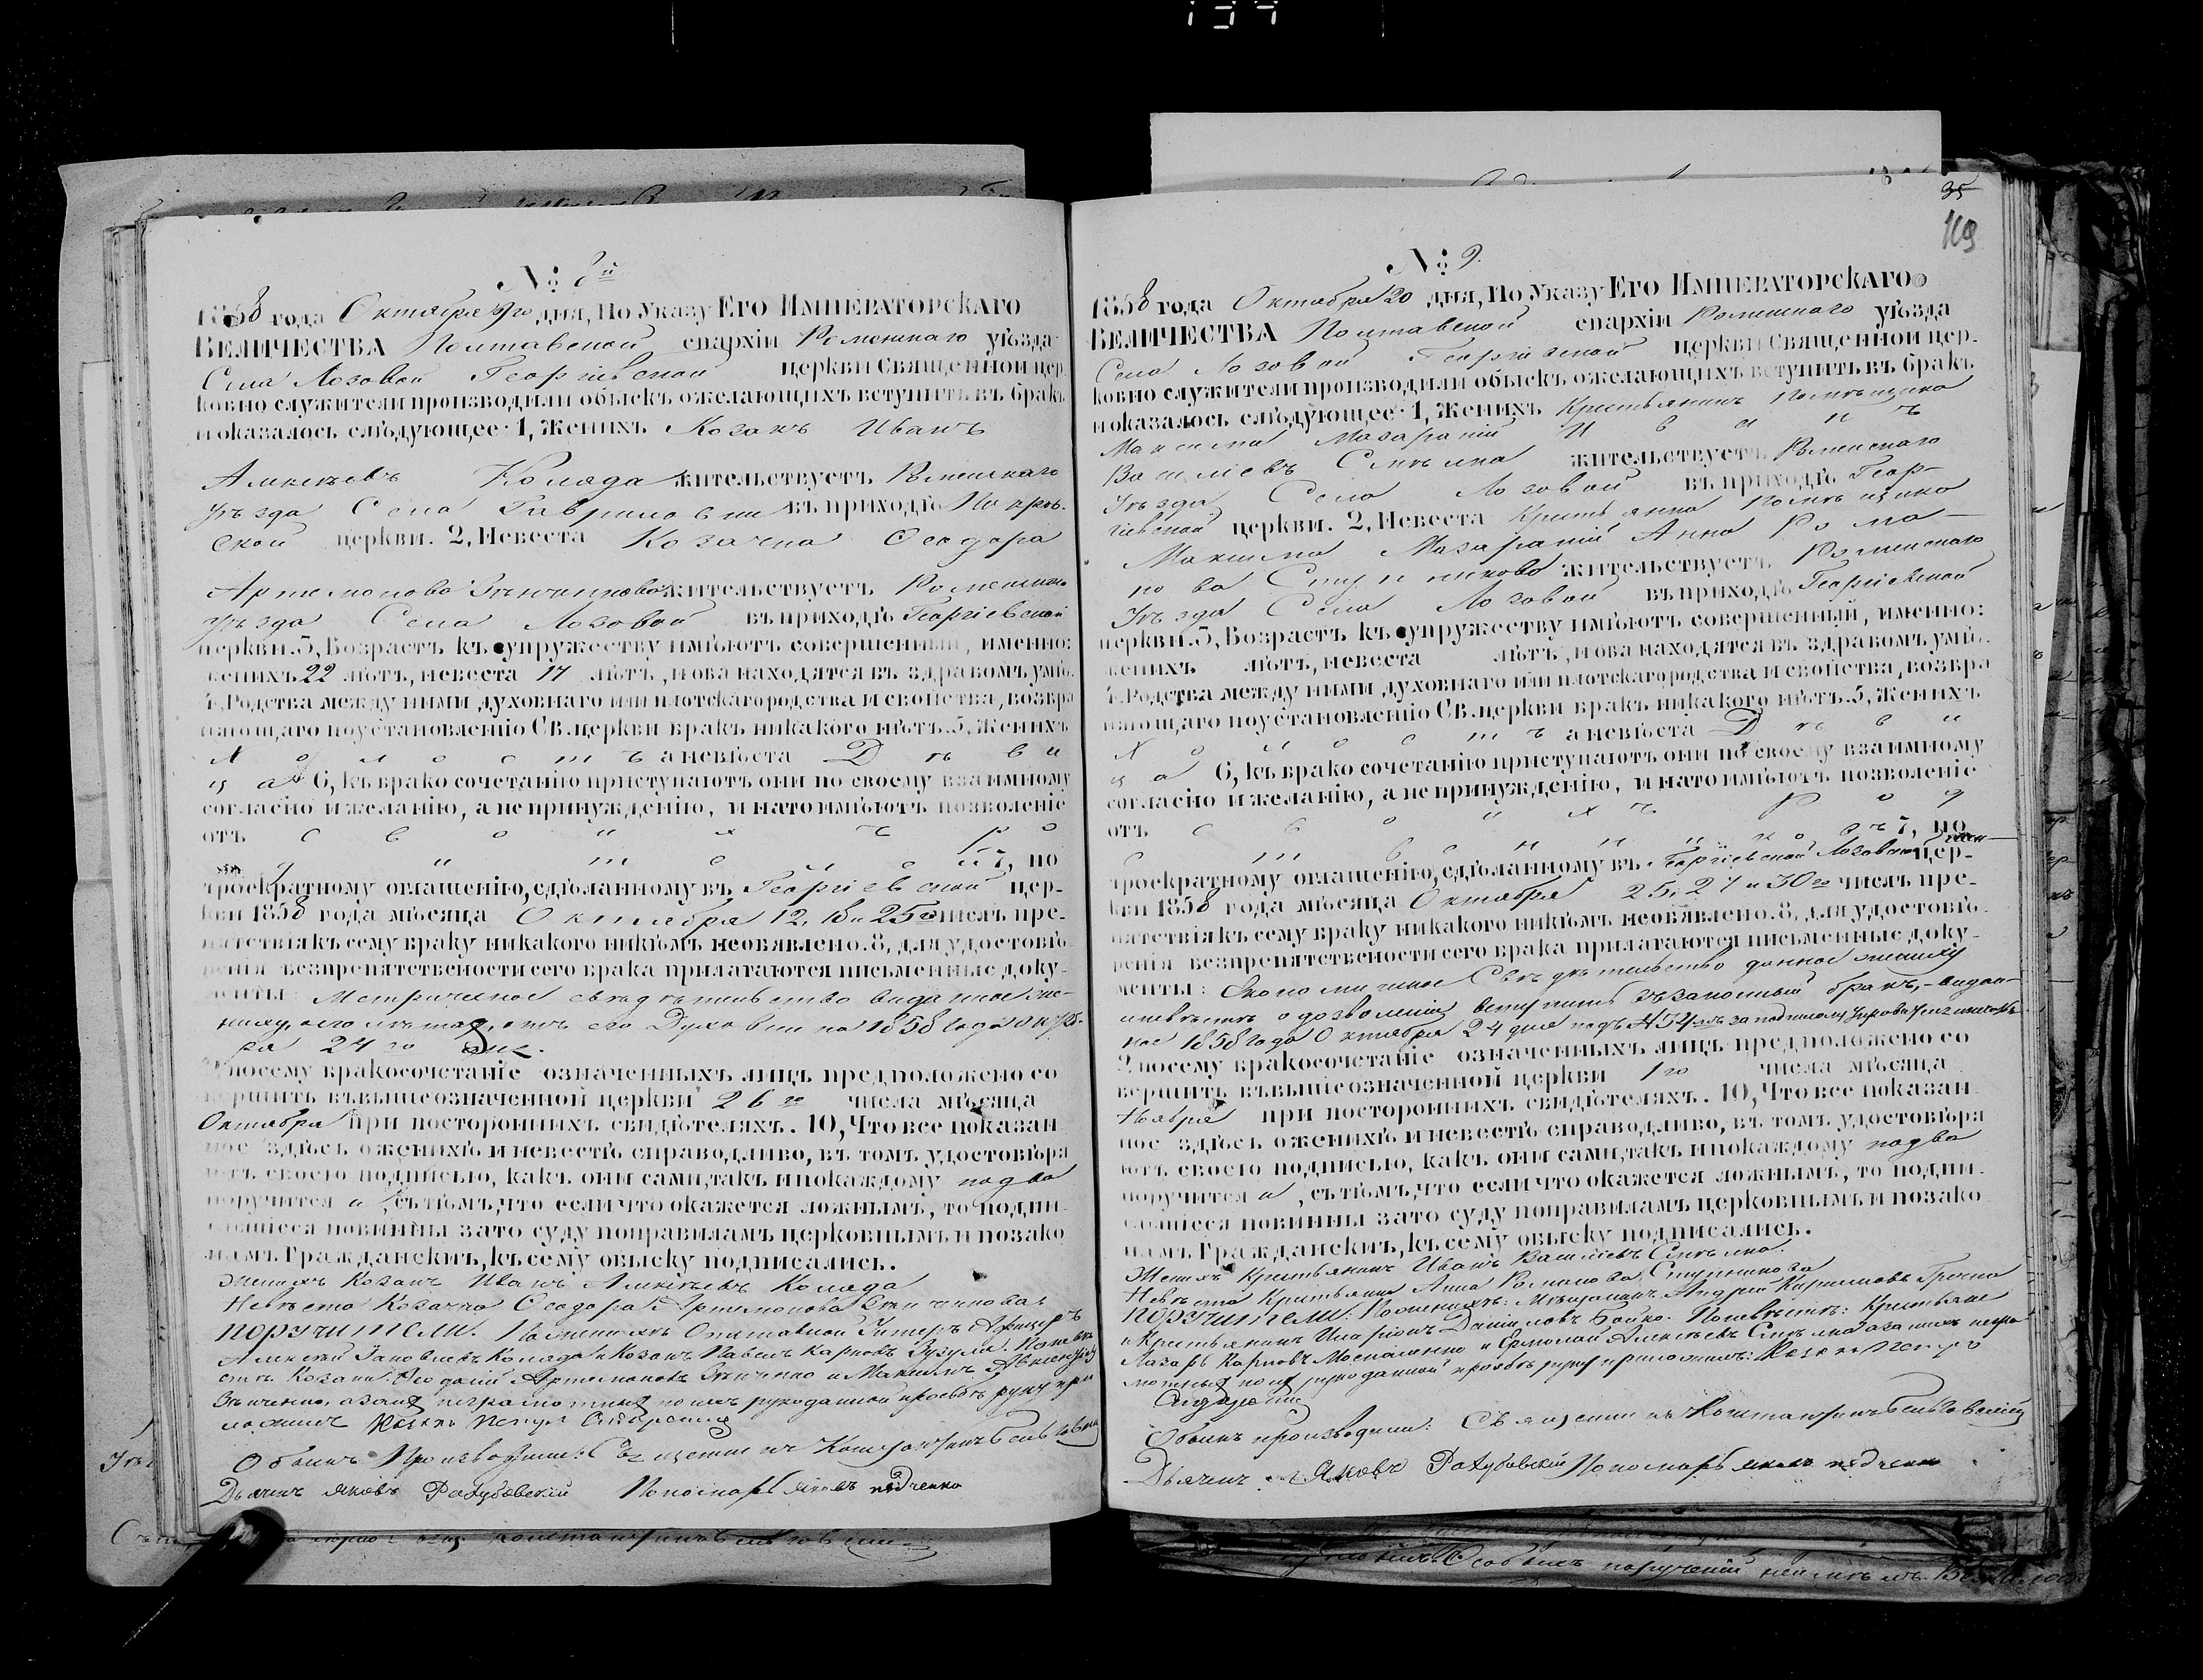 № 8й
1858 года Октября 9го дня, По Указу Его Императорскаго
Величества Полтавской епархіи Роменскаго уѣзда
Села Лозовой Георгіевской церкви Священной цер
ковно служители производили обыскъ ожелающихъ вступить въ бракъ
и оказалось слѣдующее: 1, Женихъ Козакъ Иванъ
Алексѣевъ Коляда жительствуетъ Роменскаго
уѣзда Села Гавриловки въ приходѣ Покров-
ской церкви. 2, Невеста Козачка Ѳеодора
Артемонова Зѣнченкова жительствуетъ Роменскаго
уѣзда Села Лозовой въ приходѣ Георгіевской
церкви. 3, Возрастъ къ супружеству имѣютъ совершенный, именно:
женихъ 22 лѣтъ, невеста 17 лѣтъ, и ова находятся въ здравомъ умѣ.
4, Родства между ними духовнаго или плотскаго родства и свойства, возвра
няющаго поустановленію Св. церкви вракъ никакого нѣтъ. 5, Женихъ
Холостъ а невѣста Дѣви
ца 6, къ врако сочетанію приступаютъ они по своему взаимному
согласію и желанію, а не принужденію, и нато имѣютъ позволеніе
отъ своихъ ро
дителей 7, по
троекратному оглашенію, сдѣланному въ Георгіевской цер-
кви 1858 года мѣсяца Октября 12, 18 и 25го числъ пре-
пятствія къ сему враку никакого никѣмъ необявлено. 8, для удостовѣ-
ренія везпрепятствености сего врака прилагаются письменные доку-
менты: Метрическое свидѣтельство выданное же-
ниху, его лѣтахъ, отъ его Духовни на 1858 года Октяб-
ря 24го
9 посему вракосочетаніе означенныхъ лицъ предположено со
вершить въ вышеозначенной церкви 26го числа мѣсяца
Октября при постороннихъ свидѣтеляхъ. 10, Что все показан
ное здѣсь о женихѣ и невестѣ справодливо, въ томъ удостовѣря
ютъ своею подписью, какъ они сами, такъ и покаждому подва
поручителя, съ тѣмъ, что если что окажется ложнымъ, то подпи
савшіеся повинны зато суду поправиламъ церковнымъ и позако
намъ Гражданскихъ, къ сему овыску подписались.
Женихъ Козакъ Иванъ Алексѣевъ Коляда
Невѣста Козачка Ѳеодора Артемонова Зѣнченкова
поручители. По женихѣ Отставной Унтеръ Афицеръ
Алексѣй Яковлевъ Коляда и Козакъ Павелъ Карповъ Зузуля. По невѣ
стѣ Козаки: Ѳеодосій Артемоновъ Зѣнченко и Максимъ
Зѣнченко, а за ихъ неграмотныхъ по ихъ рукоданной прозьбѣ руку при
ложилъ Козакъ Петръ Сидоренко
Обыскъ Производили: Священникъ Константинъ
Дьячекъ Яковъ Рахубовскій Пономарь Яковъ
35
№ 9.
1858 года Октября 20 дня, По Указу Его Императорскаго
Величества Полтавской епархіи Роменскаго уѣзда
Села Лозовой Георгіевской церкви Священной цер-
ковно служители производили обыскъ ожелающихъ вступить въ бракъ
и оказалось слѣдующее: 1, Женихъ Крестьянинъ Помѣщика
Максима Мазаракій Иванъ
Васильевъ Сикъ жительствуетъ Роменскаго
Уѣзда Села Лозовой въ приходѣ Геор-
гіевской церкви. 2, Невеста Крестьянка Помѣщика
Максима Мазаракій Анна Рома-
нова Ступникова жительствуетъ Роменскаго
Уѣзда Села Лозовой въ приходѣ Георгіевской
церкви. 3, Возрастъ къ супружеству имѣютъ совершенный, именно:
женихъ лѣтъ, невеста лѣтъ, и ова находятся въ здравомъ умѣ.
4, Родства между ними духовнаго или плотскаго родства и свойства, возвра
няющаго поустановленію Св. церкви вракъ никакого нѣтъ. 5, Женихъ
Холостъ а невѣста Дѣви
ца 6, къ врако сочетанію приступаютъ они по своему взаимному
согласію и желанію, а не принужденію, и нато имѣютъ позволеніе
отъ своихъ род
ственниковъ 7, по
троекратному оглашенію, сдѣланному въ Георгіевской Лозовской цер-
кви 1858 года мѣсяца Октября 25, 27 и 30го числъ пре-
пятствія къ сему враку никакого никѣмъ необявлено. 8, для удостовѣ-
ренія везпрепятствености сего врака прилагаются письменные доку-
менты: Экономичное Свидѣтельство данное жениху
и невѣстѣ о дозволеніи вступить въ законный бракъ, - видан-
ное 1858 года Октября 24 дня подъ
9 посему вракосочетаніе означенныхъ лицъ предположено со
вершить въ вышеозначенной церкви 1го числа мѣсяца
Ноября при постороннихъ свидѣтеляхъ. 10, Что все показан
ное здѣсь о женихѣ и невестѣ справодливо, въ томъ удостовѣря
ютъ своею подписью, какъ они сами, такъ и покаждому подва
поручителя, съ тѣмъ, что если что окажется ложнымъ, то подпи
савшіеся повинны зато суду поправиламъ церковнымъ и позако
намъ Гражданскихъ, къ сему овыску подписались.
Женихъ Крестьянинъ Иванъ Васильевъ
Невѣста Крестьянка Анна Романова Ступникова
поручители: По женихѣ: Мѣщанинъ Андрей Кириловъ
и Крестьянинъ Иларіонъ Даниловъ Бойко. По невѣстѣ: Крестьяне
Лазарь Карповъ Москаленко и Ермолай Алексѣевъ а за ихъ негра
мотныхъ по ихъ рукоданной прозьбѣ руку приложилъ: Козакъ Петро
Сидоренко
Обыскъ производили: Священникъ Константинъ
Дьячекъ Яковъ Рахубовскій Пономарь Яковъ